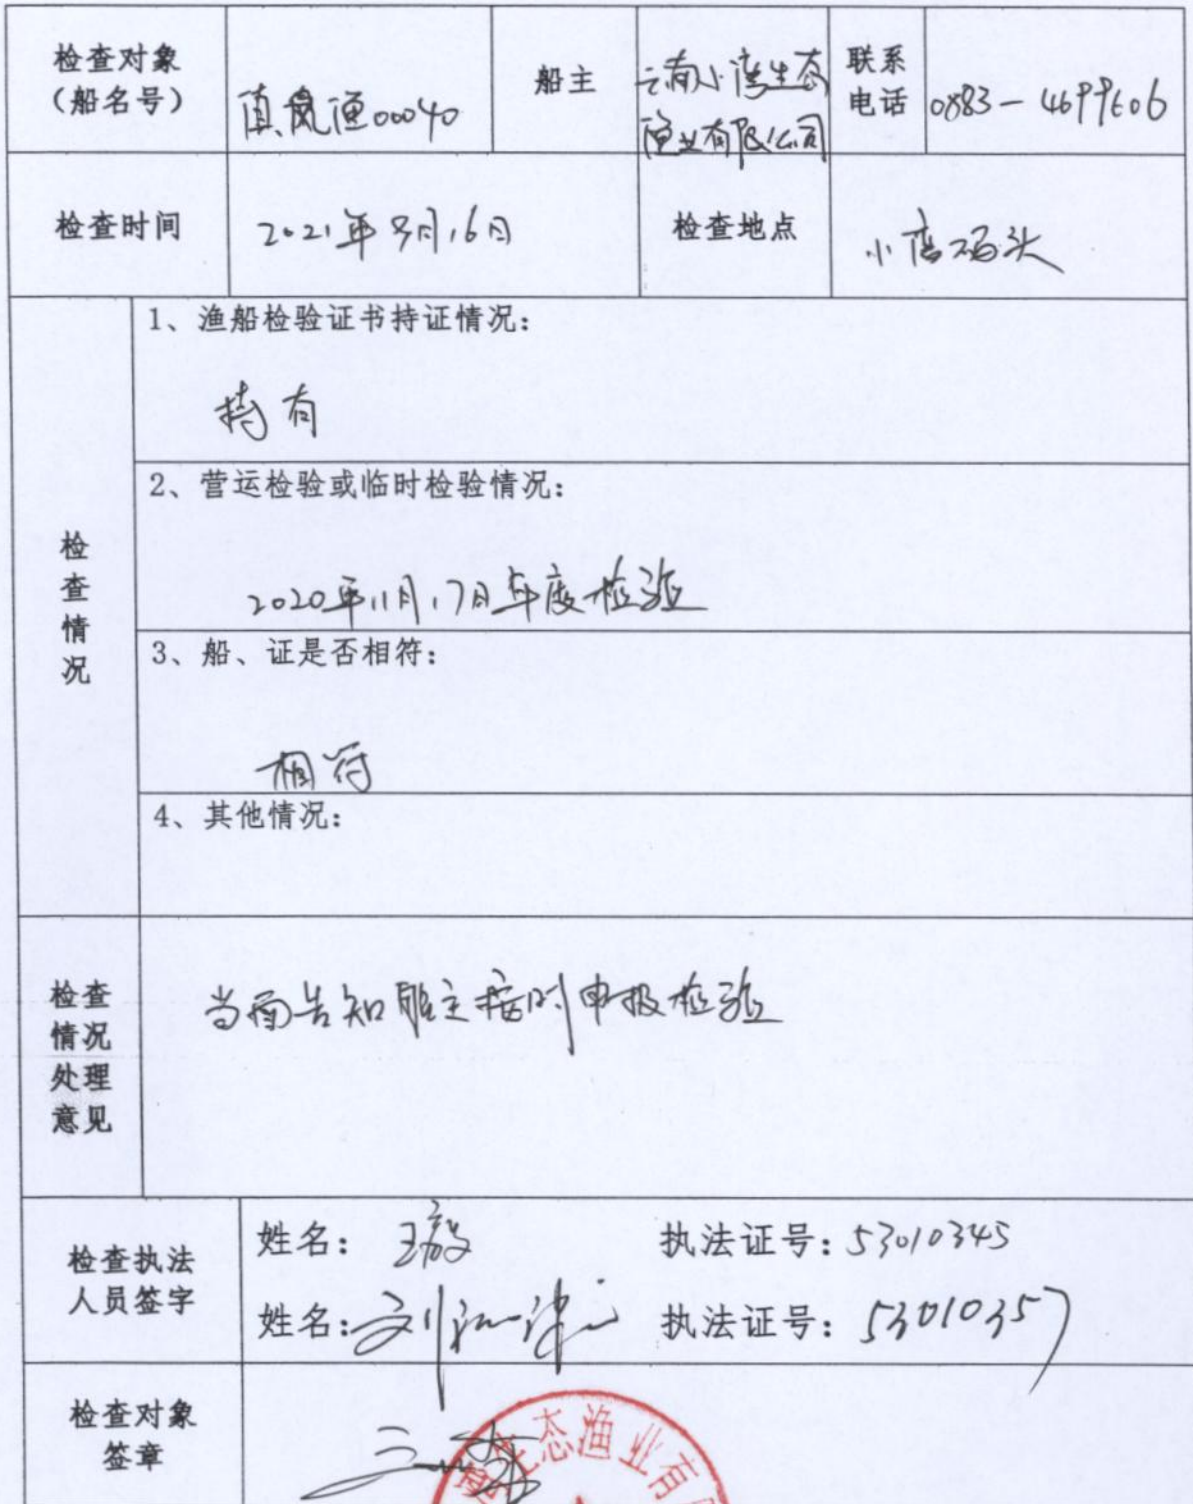 检查对象
（船名号）
滇凤渔00040
船主
云南小湾生态
渔业有限公司
联系
电话
0883-4699606
检查时间
2021年9月16日
检查地点
小湾码头
检查情况
1、渔船检验证书持证情况：
持有
2、营运检验或临时检验情况：
2020年11月17日年度检验
3、船、证是否相符：
相符
4、其他情况：
检查
情况
处理
意见
当面告知船主按时申报检验
检查执法
人员签字
姓名：王
执法证号：53010345
姓名：刘
执法证号：53010357
检查对象
签章
湾生态渔业有